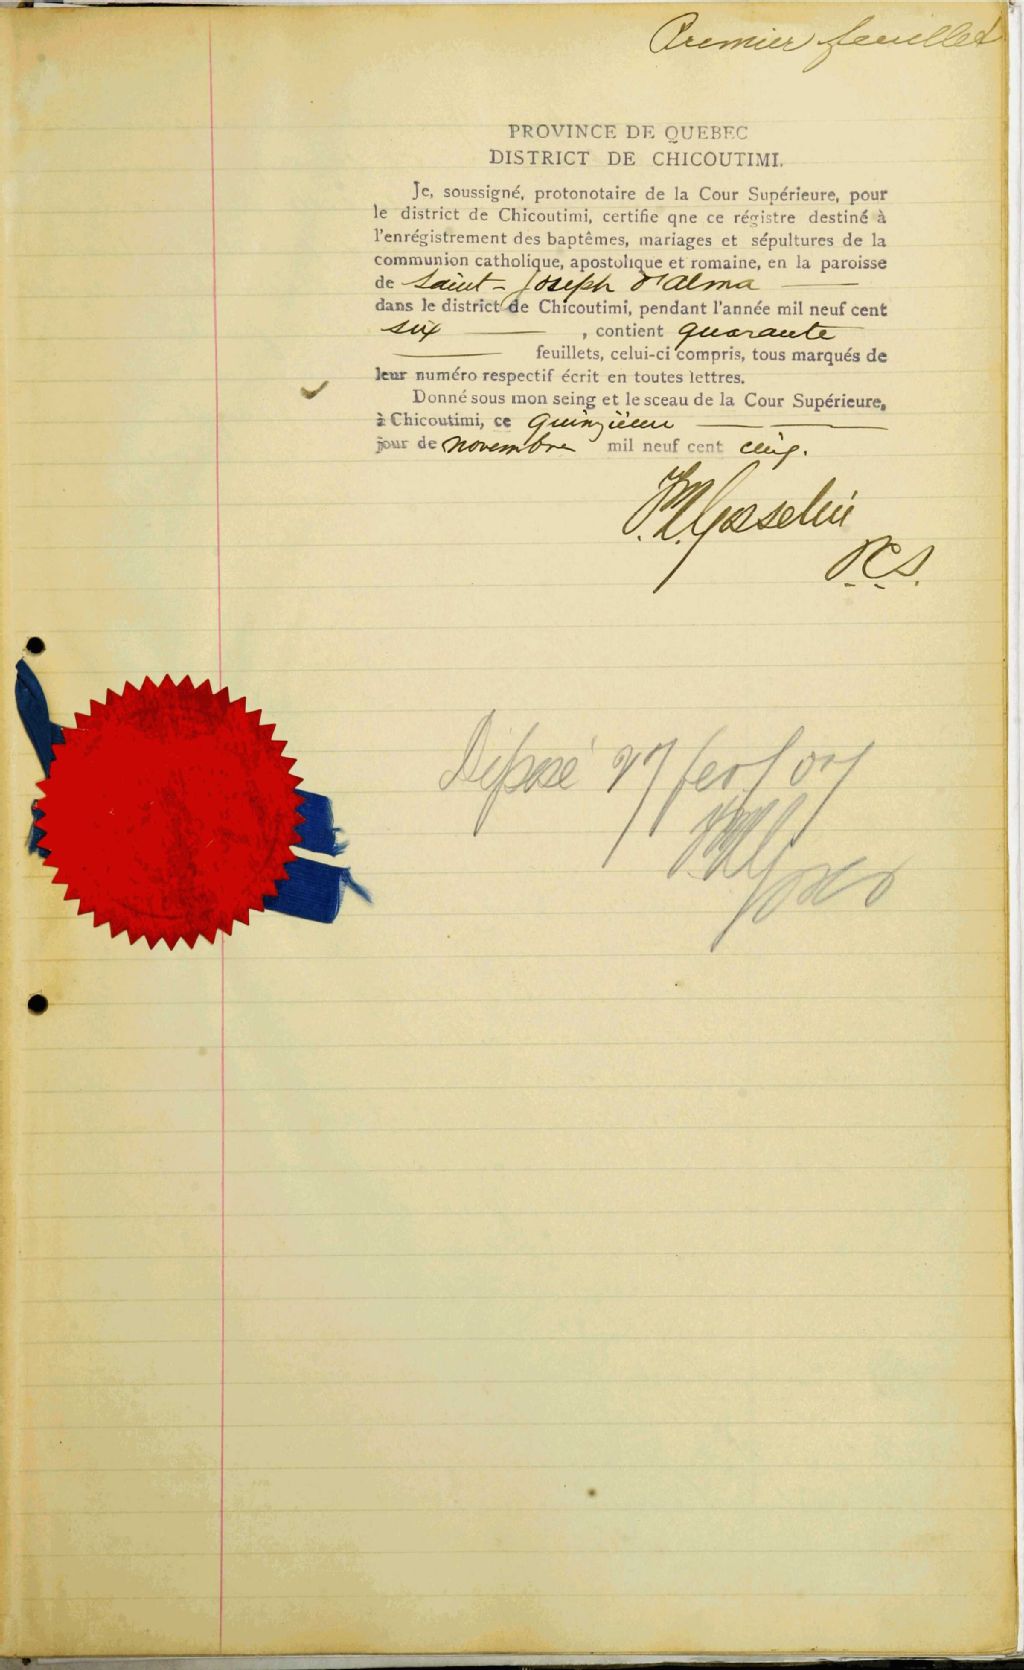 Premier feuillet
PROVINCE DE QUEBEC
DISTRICT DE CHICOUTIMI.
Je, soussigné, protonotaire de la Cour Supérieure, pour
le district de Chicoutimi, certifie qne ce régistre destiné à
l'enrégistrement des baptêmes, mariages et sépultures de la
communion catholique, apostolique et romaine, en la paroisse
de Saint-Joseph d'Alma
dans le district de Chicoutimi, pendant l'année mil neuf cent
six , contient quarante
feuillets, celui-ci compris, tous marqués de
leur numéro respectif écrit en toutes lettres.
Donné sous mon seing et le sceau de la Cour Supérieure,
à Chicoutimi, ce quinzième
jour de novembre mil neuf cent cinq.
Gosselin
P.C.S.
Déposé 27 fev/07